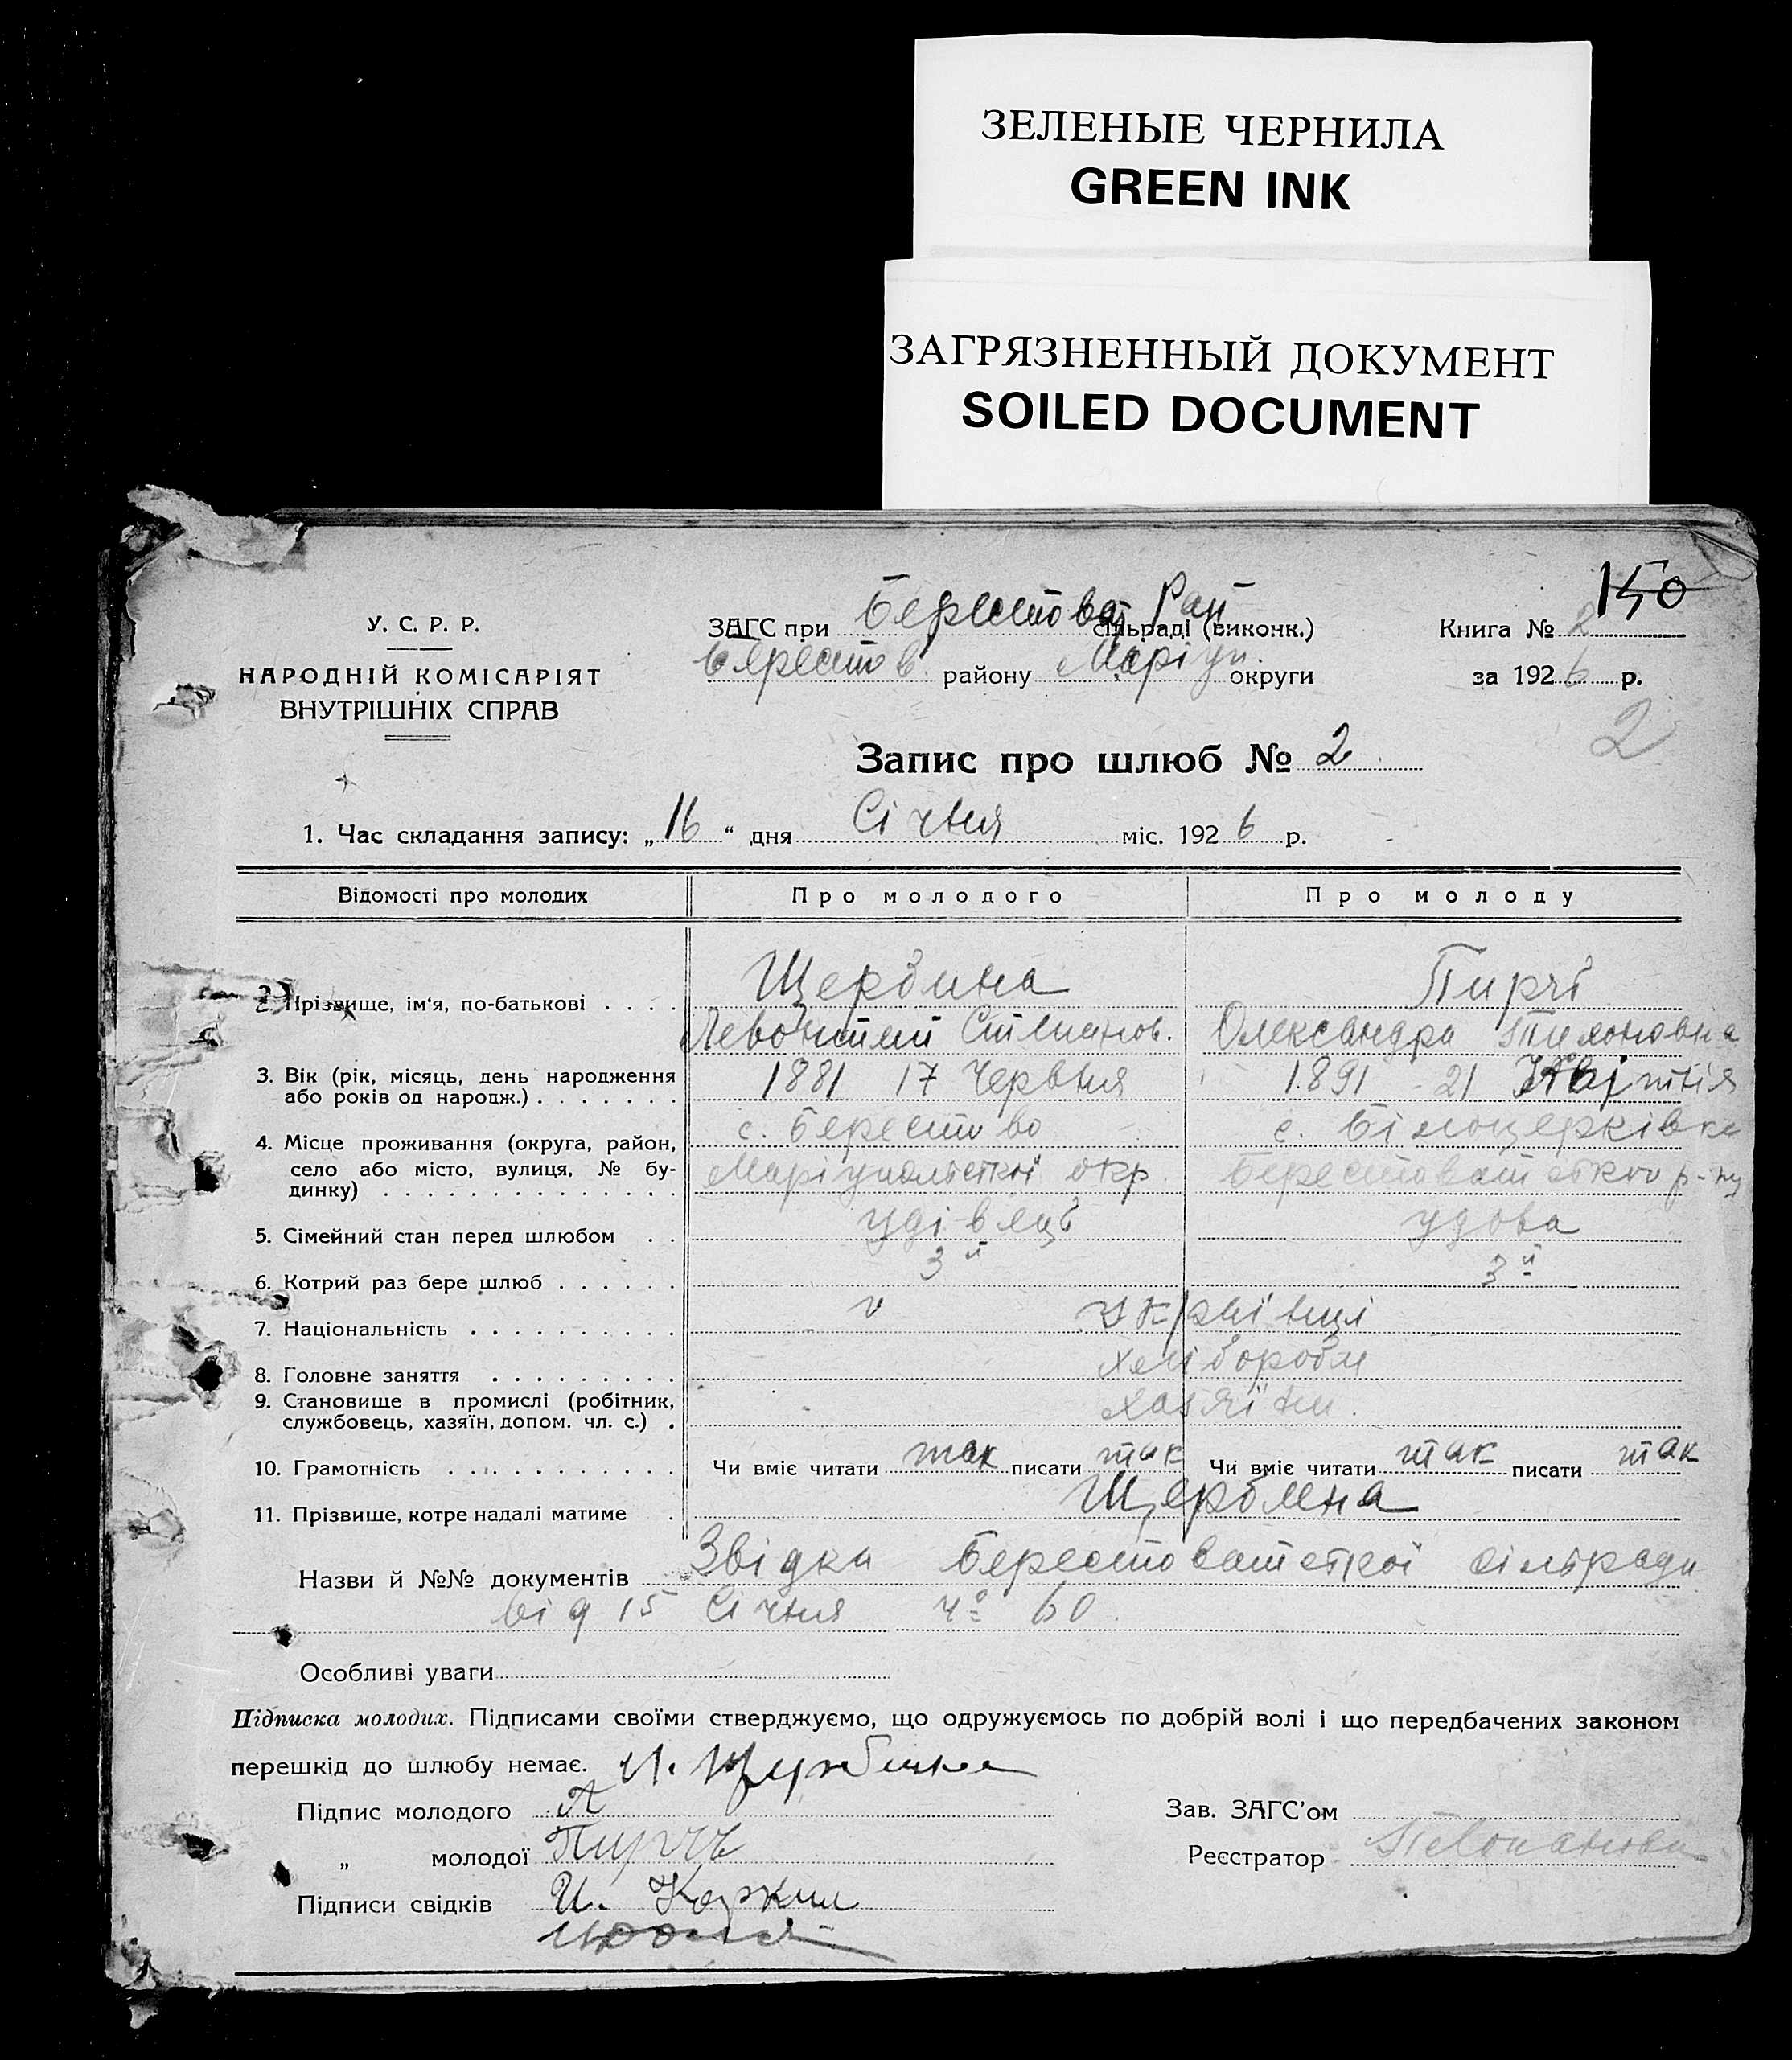 ЗЕЛЕНЫЕ ЧЕРНИЛА
GREEN INK
ЗАГРЯЗНЕННЫЙ ДОКУМЕНТ
SOILED DOCUMENT
150
У. С. Р. Р.
НАРОДНІЙ КОМІСАРІЯТ
ВНУТРІШНІХ СПРАВ
ЗАГС при Берестов. Рай сільраді (виконк.)
Берестов району Маріуп. округи
Книга № 2
за 1926 р.
2
Запис про шлюб № 2
1. Час складання запису: „16“ дня Січня міс. 1926 р.
Відомості про молодих Про молодого Про молоду
2. Прізвище, ім‘я, по-батькові . . . . Щербина Пирчі
Олександра Тихоновна
3. Вік (рік, місяць, день народження або років од народж.) . . . . . . . 1881 17 Червня 1891 21 Квітня
4. Місце проживання (округа, район, село або місто, вулиця, № будинку) . . . . . . . . . . . . . . с. Берестово с. Білоцерківка
Маріупольської окр.
5. Сімейний стан перед шлюбом . . удівець удова
6. Котрий раз бере шлюб . . . . . . 3й 3й
7. Національність . . . . . . . . . . Українці
8. Головне заняття . . . . . . . . . хлібороби
9. Становище в промислі (робітник, службовець, хазяїн, допом. чл. с.) . хазяїни.
10. Грамотність . . . . . . . . . . . Чи вміє читати так писати так Чи вміє читати так писати так
11. Прізвище, котре надалі матиме . Щербина
Назви й №№ документів Звідка Берестоватської сільради
від 15 Січня ч° 60.
Особливі уваги
Підписка молодих. Підписами своїми стверджуємо, що одружуємось по добрій волі і що передбачених законом
перешкід до шлюбу немає.
Підпис молодого
„ молодої Пирчь
Підписи свідків И.
Зав. ЗАГС’ом
Реєстратор